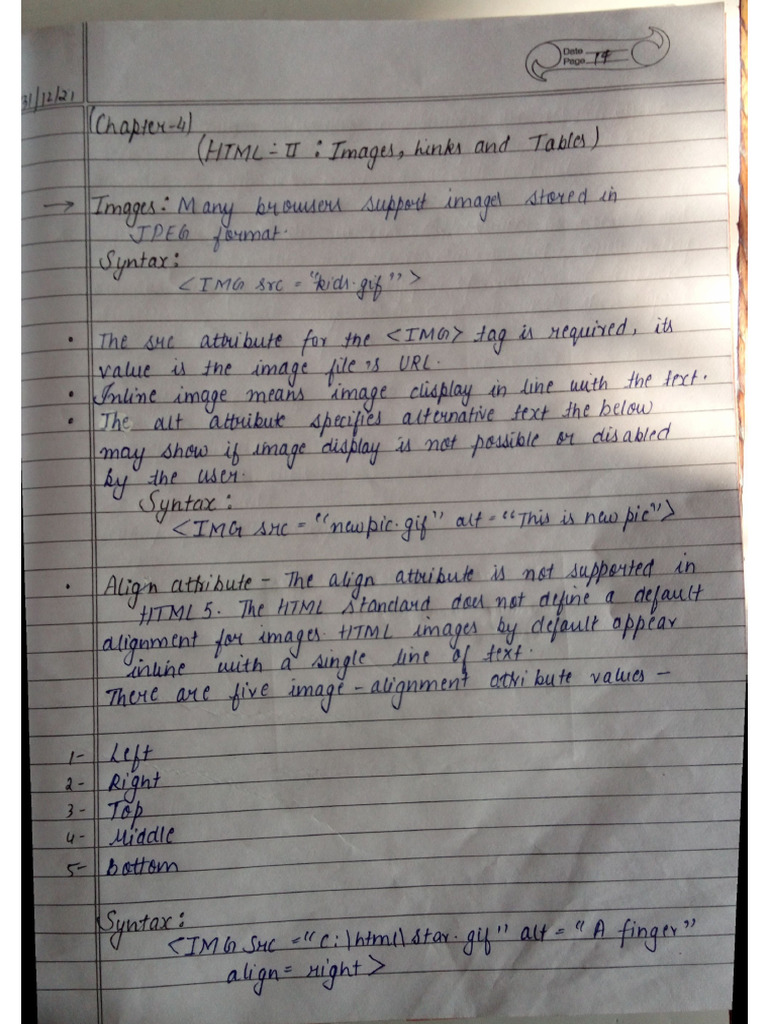 Date
Page 14
31/12/21
(Chapter-4)
(HTML-II : Images, Links and Tables)
→ Images: Many browsers support images stored in
JPEG format.
Syntax:
<IMG src = "kids.gif">
• The src attribute for the <IMG> tag is required, its
value is the image file's URL.
• Inline image means image display in line with the text.
• The alt attribute specifies alternative text the below
may show if image display is not possible or disabled
by the user.
Syntax:
<IMG src = "newpic.gif" alt = "This is new pic">
• Align attribute - The align attribute is not supported in
HTML 5. The HTML standard does not define a default
alignment for images. HTML images by default appear
inline with a single line of text.
There are five image-alignment attribute values -
1- Left
2- Right
3- Top
4- Middle
5- Bottom
Syntax:
<IMG Src = "C:\html\star.gif" alt = "A finger"
align = right>